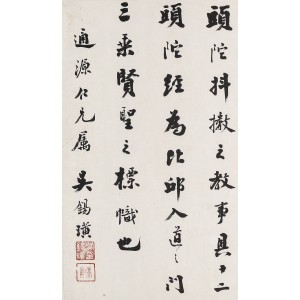 頭陀抖擻之教事具十二
頭陀經為比邱入道之門
三乘賢聖之標幟也
通源仁兄属 吴錫璜